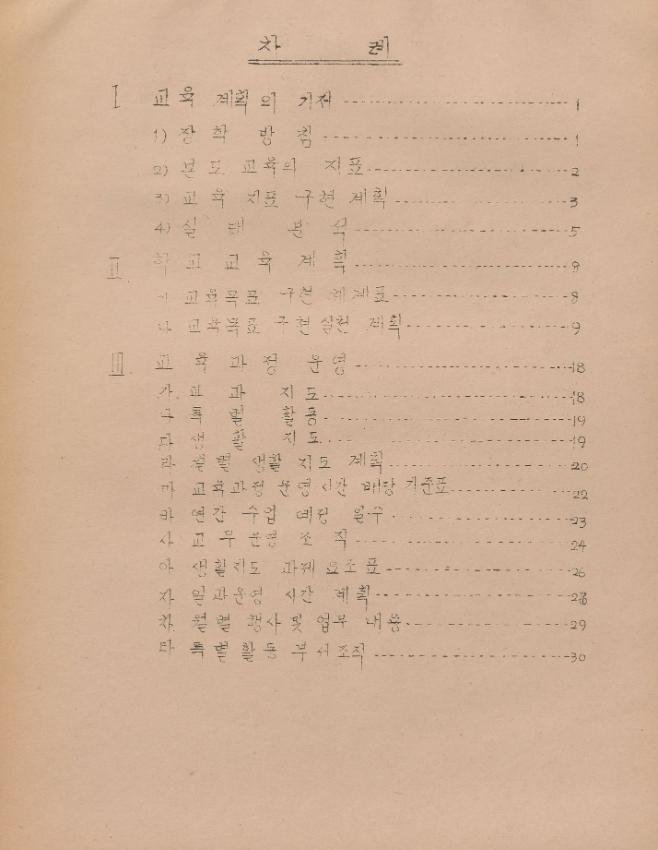 차 례
Ⅰ 교육 계획의 기저 ---------- 1
1) 장학 방침 ---------- 1
2) 본도 교육의 지표 ---------- 2
3) 교육 지표 구현 계획 ---------- 3
4) 실태 분석 ---------- 5
Ⅱ. 학교 교육 계획 ---------- 8
가 교육목표 구현 체계표 ---------- 8
나 교육목표 구현 실천 계획 ---------- 9
Ⅲ. 교육과정 운영 ---------- 18
가. 교과 지도 ---------- 18
특별 활동 ---------- 19
다 생활 지도 ---------- 19
라 월별 생활 지도 계획 ---------- 20
마 교육과정 운영 시간 배당 기준표 ---------- 22
바 연간 수업 예정 일수 ---------- 23
사 교무 운영 조직 ---------- 24
아 생활지도 과제 요소표 ---------- 26
자 일과운영 시간 계획 ---------- 28
차. 월별 행사 및 업무 내용 ---------- 29
타 특별활동 부서조직 ---------- 30